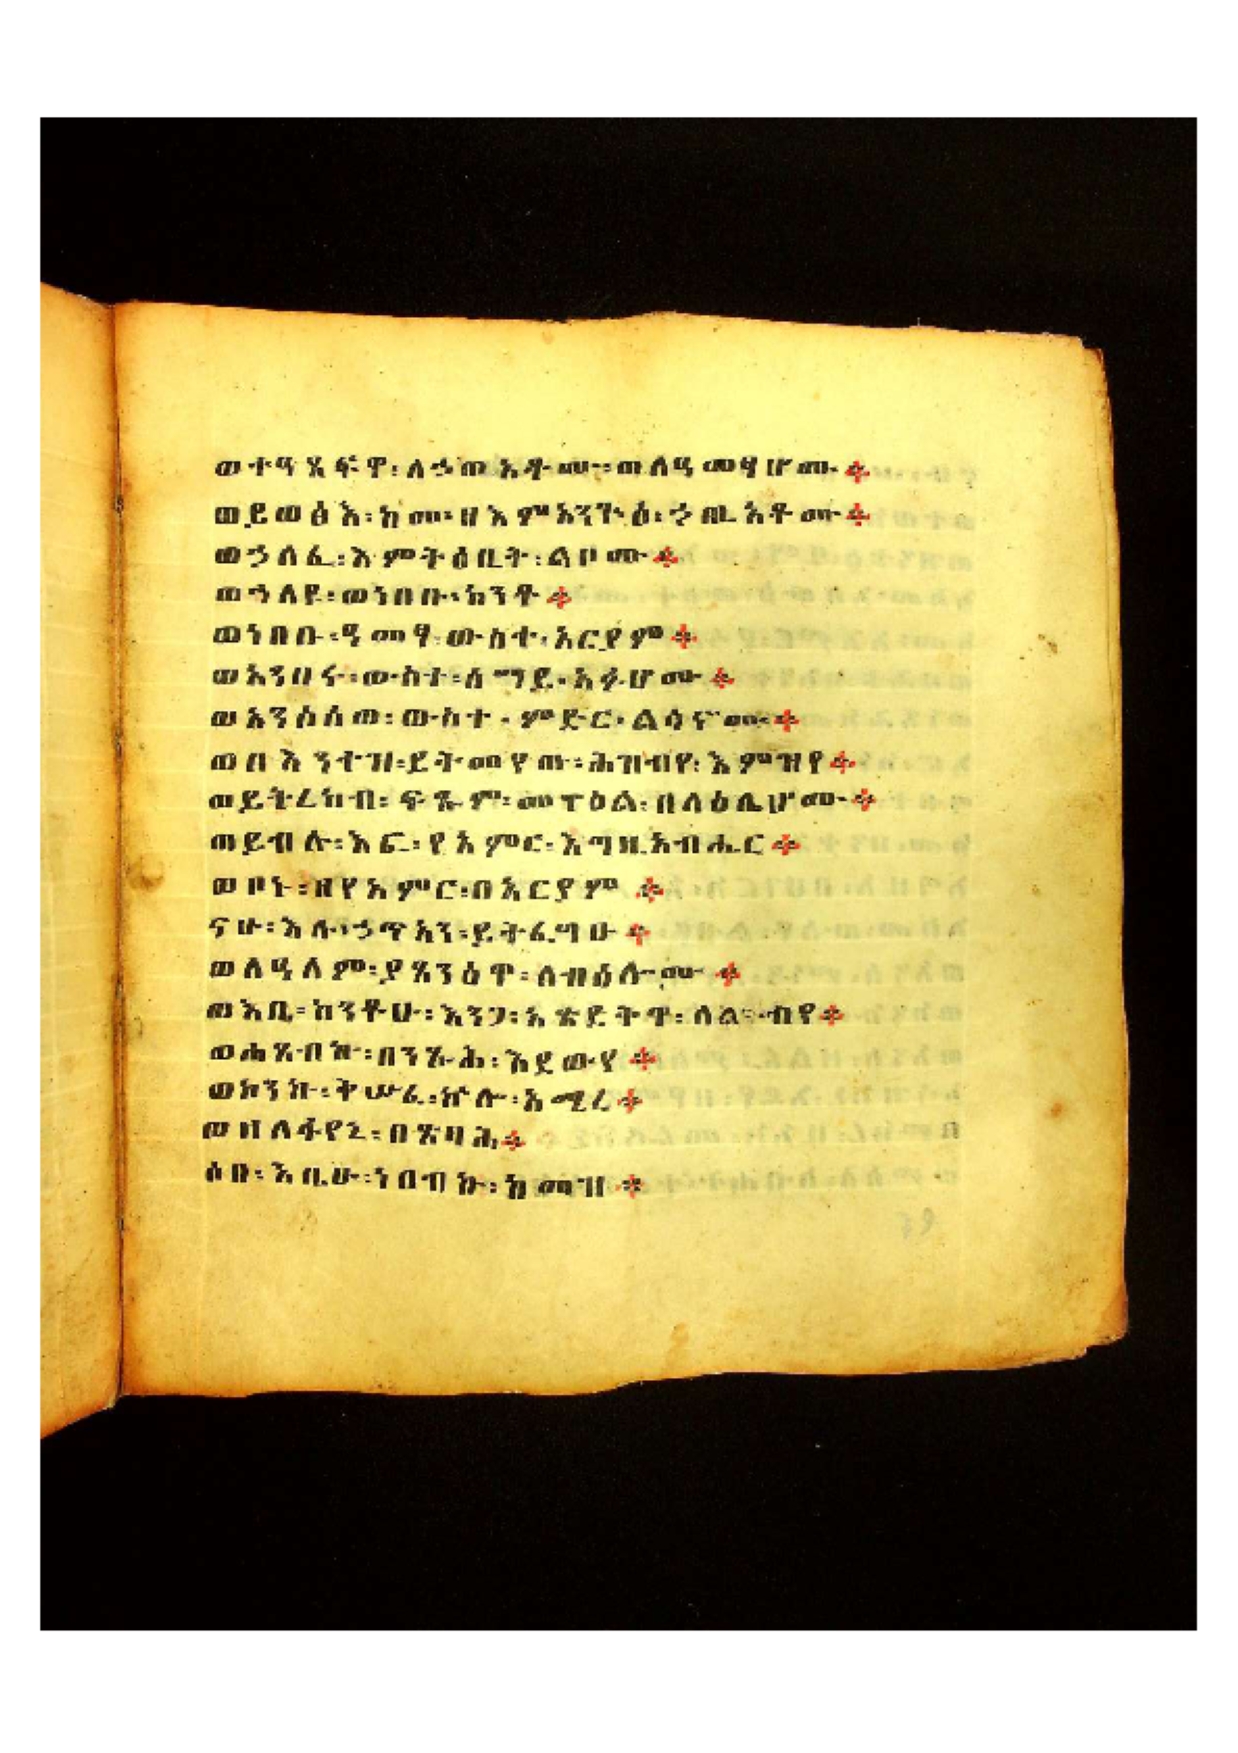 ወተዓጸፍዋ፡ለኃጢአቶሙ፡ወለዓመፃሆሙ፨
ወይወፅእ፡ከመ፡ዘእምአንጕዕ፡ኃጢአቶሙ፨
ወኃለፈ፡እምትዕቢት፡ልቦሙ፨
ወኀለዩ፡ወነበቡ፡ከንቶ፨
ወነበቡ፡ዓመፃ፡ውስተ፡አርያም፨
ወአንበሩ፡ውስተ፡ሰማይ፡አፉሆሙ፨
ወአንሶሰወ፡ውስተ፡ምድር፡ልሳኖሙ፨
ወበእንተዝ፡ይትመየጡ፡ሕዝብየ፡እምዝየ፨
ወይትረከብ፡ፍጹም፡መዋዕል፡በላዕሌሆሙ፨
ወይብሉ፡እፎ፡የአምር፡እግዚአብሔር፨
ወቦኑ፡ዘየአምር፡በአርያም፨
ናሁ፡እሉ፡ኃጥአን፡ይትፌግሁ፨
ወለዓለም፡ያጸንዕዋ፡ለብዕሎሙ፨
ወእቤ፡ከንቶሁ፡እንጋ፡አጽደቅዋ፡ለልብየ፨
ወሐጸብኩ፡በንጹሕ፡እደውየ፨
ወኮንኩ፡ቅሡፈ፡ኵሎ፡አሚረ፨
ወዘለፋየኒ፡በጽባሕ፨
ሶበ፡እቤሁ፡ነበብኩ፡ከመዝ፨